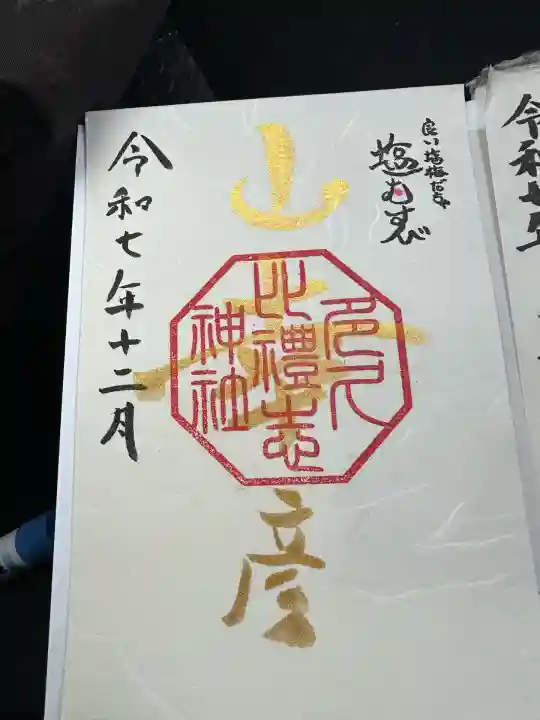 良い塩梅だちゅ
塩むすび
山
彦
色久
比禮志
神社
令和七年十二月
令和七年